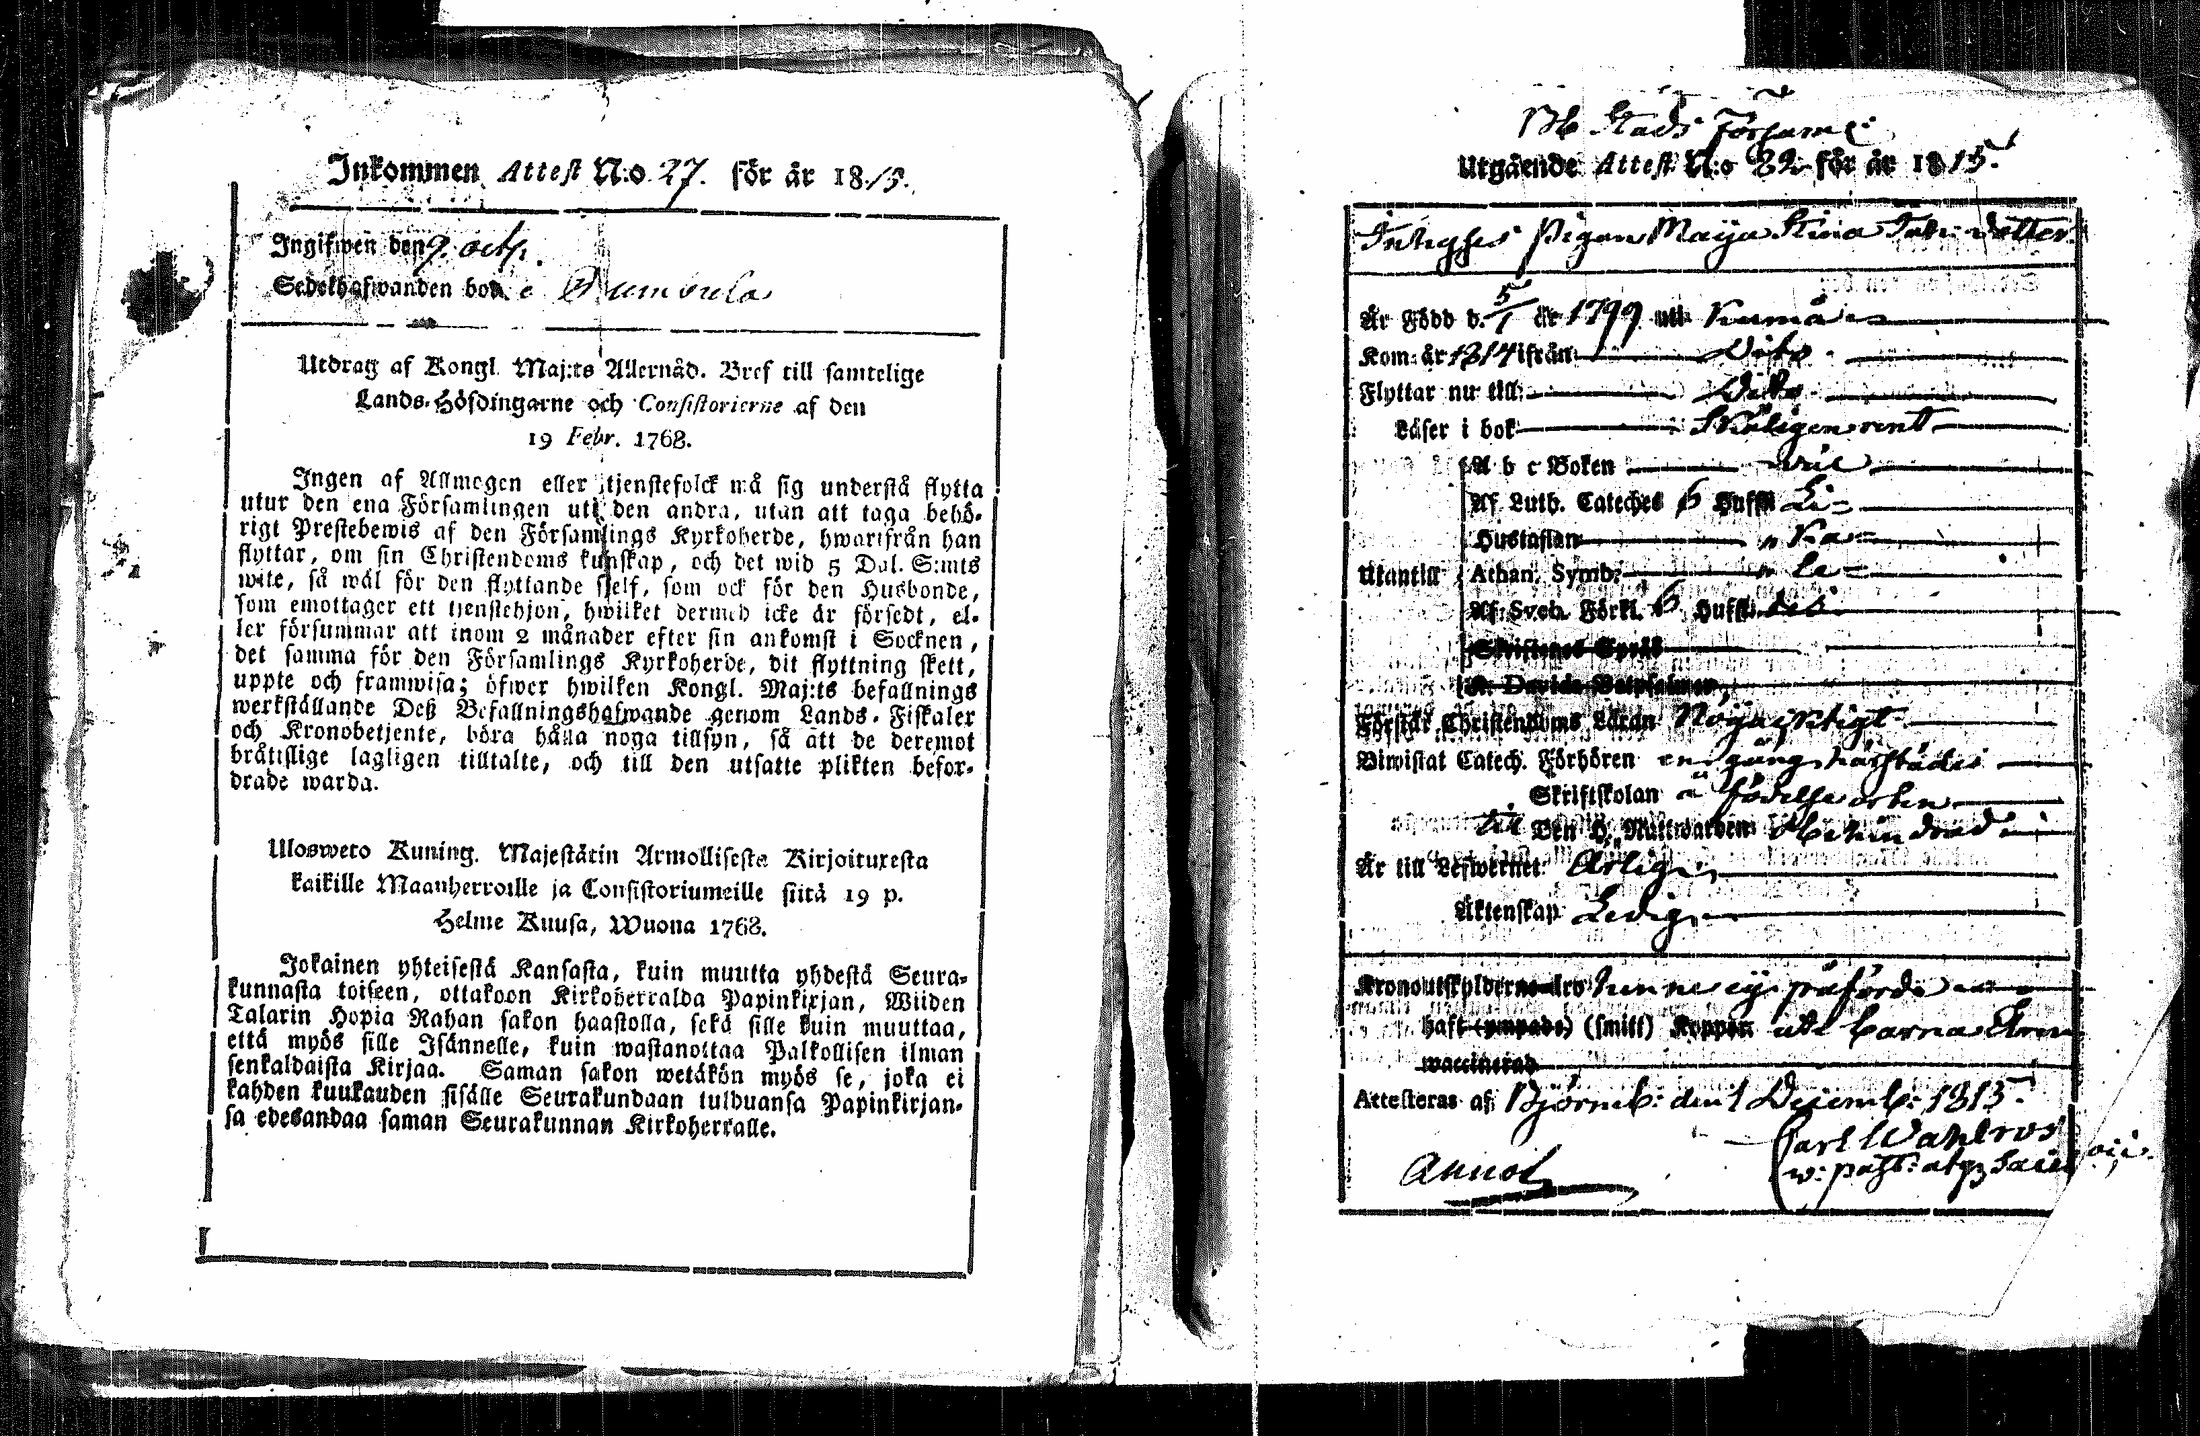 Inkommen Attest N:o 27. för år 1815.
Ingifwen den 9. octb.
Sedelhafwanden bor i
Utdrag af Kongl. Maj:ts Allernåd. Bref till samtelige
Lands-Höfdingarne och Consistorierne af den
19 Febr. 1768.
Ingen af Allmogen eller tjenstefolck må sig understå flytta
utur den ena Församlingen uti den andra, utan att taga behö-
rigt Prestebewis af den Församlings Kyrkoherde, hwarifrån han
flyttar, om sin Christendoms kunskap, och det wid 5 Dal. S:mts
wite, så wäl för den flyttande sjelf, som ock för den Husbonde,
som emottager ett tjenstehjon, hwilket dermed icke är försedt, el-
ler försummar att inom 2 månader efter sin ankomst i Socknen,
det samma för den Församlings Kyrkoherde, dit flyttning skett,
uppte och framwisa; öfwer hwilken Kongl. Maj:ts befallnings
werkställande Deß Befallningshafwande genom Lands-Fiskaler
och Kronobetjente, böra hålla noga tillsyn, så att de deremot
bråtislige lagligen tilltalte, och till den utsatte plikten befor-
drade warda.
Ulosweto Kuning. Majestätin Armollisesta Kirjoituxesta
kaikille Maanherroille ja Consistoriumeille siitä 19 p.
Helme Kuusa, Wuona 1768.
Jokainen yhteisestä Kansasta, kuin muutta yhdestä Seura-
kunnasta toiseen, ottakoon Kirkoherralda Papinkirjan, Wiiden
Talarin Hopia Rahan sakon haastolla, sekä sille kuin muuttaa,
että myös sille Isännelle, kuin wastanottaa Palkollisen ilman
senkaldaista Kirjaa. Saman sakon wetäkön myös se, joka ei
kahden kuukauden sisälle Seurakundaan tulduansa Papinkirjan-
sa edesandaa saman Seurakunnan Kirkoherralle.
Bb Stads Församl:
Utgående Attest N:o 82 för år 1815.
Pigan Maija Stina dotter
Är Född d. 5/1 år 1799 uti Kumå
Kom år 1814 ifrån Dito
Flyttar nu till Dito
Läser i bok Skäligen rent
A b c Boken wäl
Af Luth. Cateches 6 Hufst. Li=
Hustaflan " Ka=
Utantill Athan. Symb. " la=
Af Sveb. Förkl. 6 Hufst. des
Skriftenes Språk
K. Davids Botpsalmer,
Förstår Christendoms Läran Nöjacktigt
Biwistat Catech. Förhören en gång härstädes
Skriftskolan å födelse orten
till Den H. Nattwarden Ohindrad
Är till Lefwernet Ärlig
Äktenskap Ledig
Kronoutskylderne äro henne ej påförde
haft (ympade) (smitt) Koppor uti barna åren
waccinerad
Attesteras af Björneb: den 1 Decemb: 1815.
Carl Wahlroos
w: past:
Annot